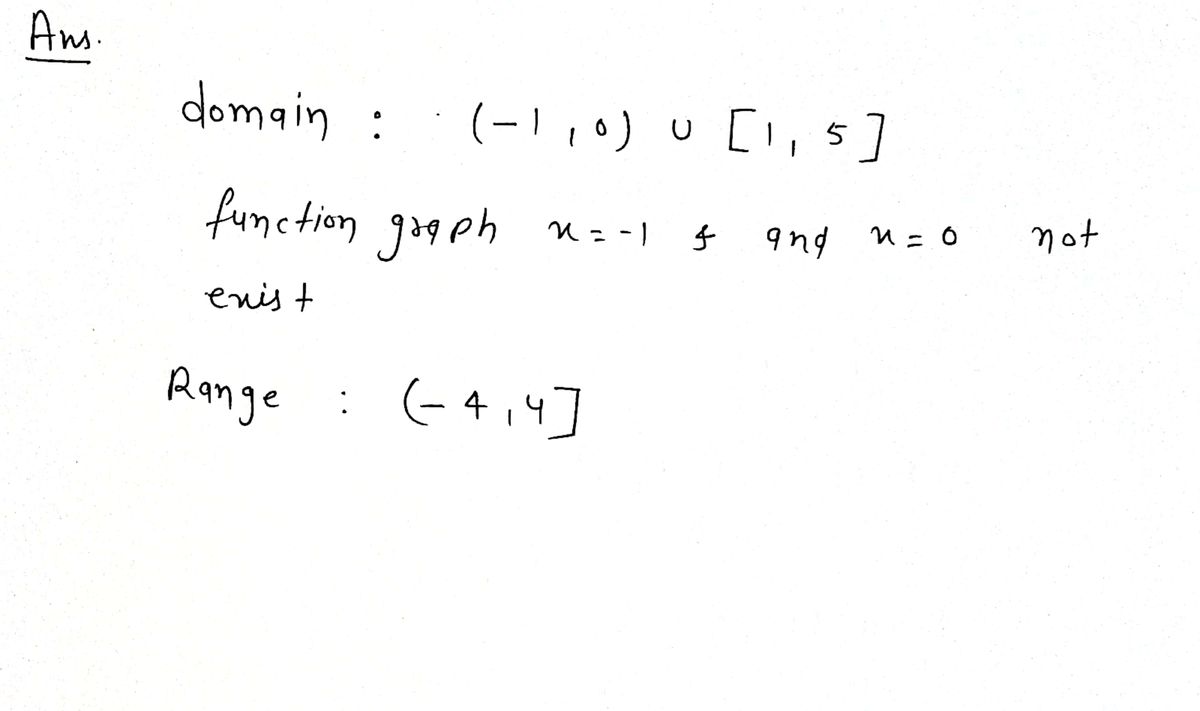 Ans.
domain : (-1, 0) ∪ [1, 5]
function graph x = -1 & and x = 0 not
exist
Range : (-4, 4]